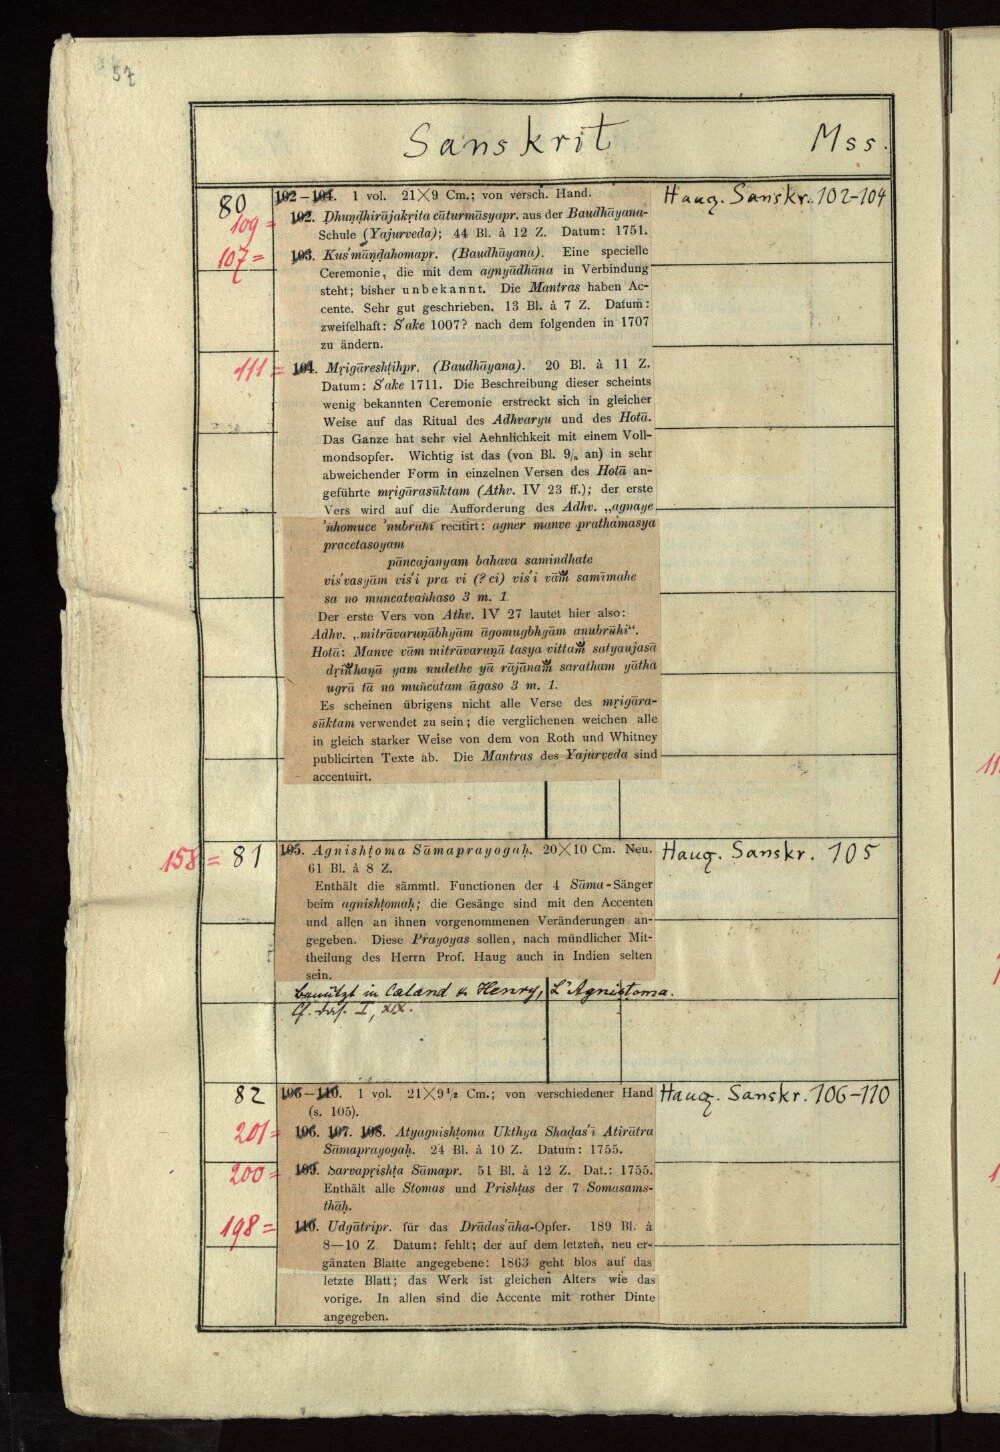 57
Sanskrit Mss.
80 102–104. 1 vol. 21×9 Cm.; von versch. Hand. Haug. Sanskr. 102-104
109 = 102. Ḍhuṇḍhirājakṛita cāturmāsyapr. aus der Baudhāyana-
Schule (Yajurveda); 44 Bl. à 12 Z. Datum: 1751.
107 = 103. Kuśmāṇḍahomapr. (Baudhāyana). Eine specielle
Ceremonie, die mit dem agnyādhāna in Verbindung
steht; bisher unbekannt. Die Mantras haben Ac-
cente. Sehr gut geschrieben. 13 Bl. à 7 Z. Datum:
zweifelhaft: S'ake 1007? nach dem folgenden in 1707
zu ändern.
111 = 104. Mṛigāreshṭihpr. (Baudhāyana). 20 Bl. à 11 Z.
Datum: S'ake 1711. Die Beschreibung dieser scheints
wenig bekannten Ceremonie erstreckt sich in gleicher
Weise auf das Ritual des Adhvaryu und des Hotā.
Das Ganze hat sehr viel Aehnlichkeit mit einem Voll-
mondsopfer. Wichtig ist das (von Bl. 9/a an) in sehr
abweichender Form in einzelnen Versen des Hotā an-
geführte mṛigārasūktam (Athv. IV 23 ff.); der erste
Vers wird auf die Aufforderung des Adhv. „agnaye
'ṅhomuce 'nubrūhi recitirt: agner manve prathamasya
pracetasoyam
pāncajanyam bahava samindhate
viśvasyām viśi pra vi (? ci) viśi vām̐ samīmahe
sa no muncatvaṅhaso 3 m. 1
Der erste Vers von Athv. IV 27 lautet hier also:
Adhv. „mitrāvaruṇābhyām āgomugbhyām anubrūhi“.
Hotā: Manve vām mitrāvaruṇā tasya vittam̐ satyaujasā
dṛim̐haṇā yam nudethe yā rājānam̐ saratham yātha
ugrā tā no muñcatam āgaso 3 m. 1.
Es scheinen übrigens nicht alle Verse des mṛigāra-
sūktam verwendet zu sein; die verglichenen weichen alle
in gleich starker Weise von dem von Roth und Whitney
publicirten Texte ab. Die Mantras des Yajurveda sind
accentuirt.
158 = 81 105. Agnishṭoma Sāmaprayogaḥ. 20×10 Cm. Neu. Haug. Sanskr. 105
61 Bl. à 8 Z.
Enthält die sämmtl. Functionen der 4 Sāma-Sänger
beim agnishṭomaḥ; die Gesänge sind mit den Accenten
und allen an ihnen vorgenommenen Veränderungen an-
gegeben. Diese Prayoyas sollen, nach mündlicher Mit-
theilung des Herrn Prof. Haug auch in Indien selten
sein.
benützt in Caland & Henry, L'Agniṣṭoma.
Cf. das. I, XIX.
82 106–110. 1 vol. 21×9½ Cm.; von verschiedener Hand Haug. Sanskr. 106-110
(s. 105).
201 = 106. 107. 108. Atyagnishṭoma Ukthya Shaḍaśi Atirātra
Sāmaprayogaḥ. 24 Bl. à 10 Z. Datum: 1755.
200 = 109. Sarvapṛishṭa Sāmapr. 51 Bl. à 12 Z. Dat.: 1755.
Enthält alle Stomas und Prishṭas der 7 Somasams-
thāḥ.
198 = 110. Udgātripr. für das Drādaśāha-Opfer. 189 Bl. à
8—10 Z. Datum: fehlt; der auf dem letzten, neu er-
gänzten Blatte angegebene: 1863 geht blos auf das
letzte Blatt; das Werk ist gleichen Alters wie das
vorige. In allen sind die Accente mit rother Dinte
angegeben.